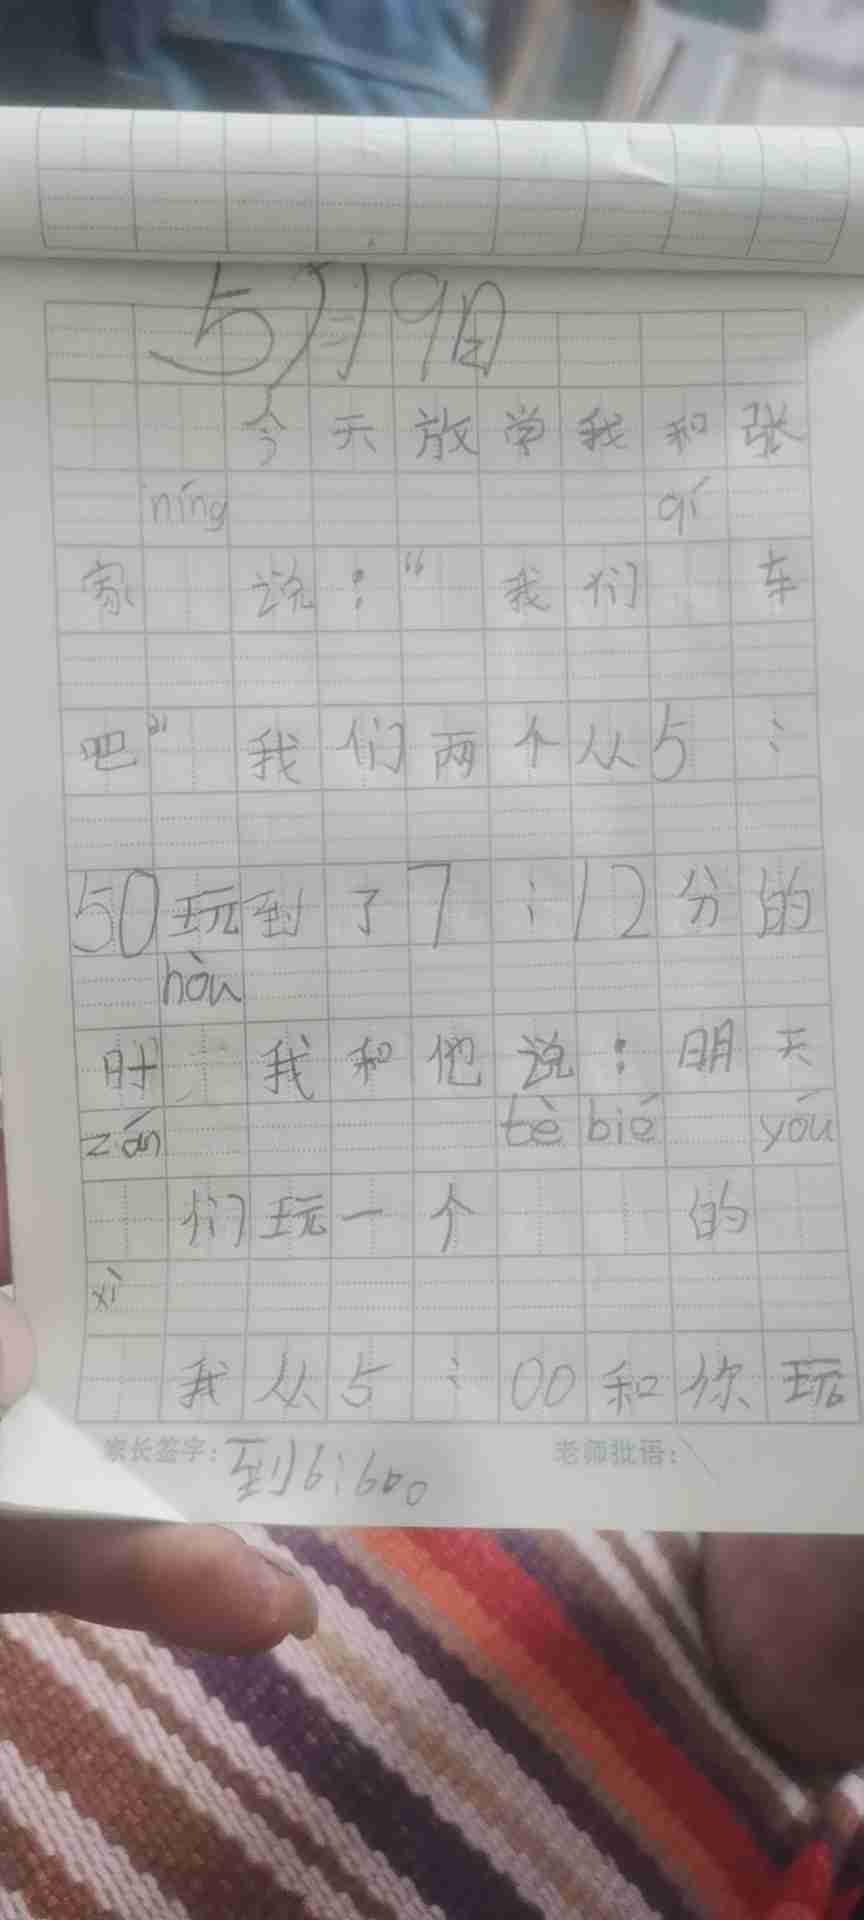 5月19日
今天放学我和张
níng qí
家 说：“我们 车
吧”我们两个从5：
50玩到了7：12分的
hòu
时 我和他说：明天
zán tè bié yóu
们玩一个 的
xì
我从5：00和你玩
家长签字： 老师批语：
到6：600。